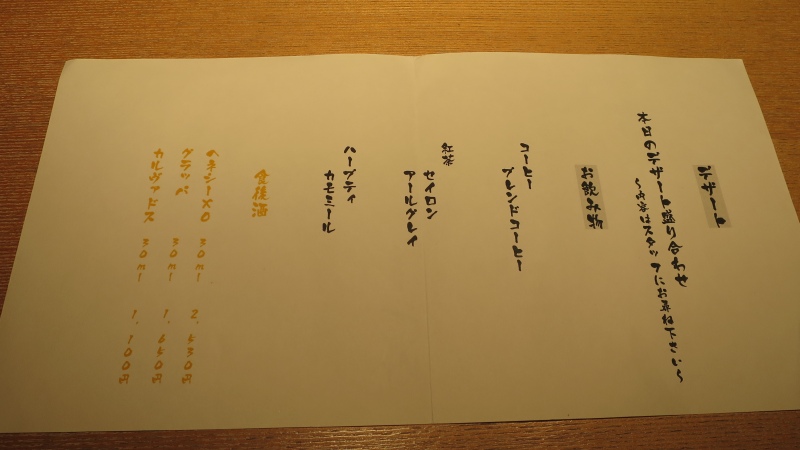 デザート
本日のデザート盛り合わせ
～内容はスタッフにお尋ね下さい～
お飲み物
コーヒー
ブレンドコーヒー
紅茶
セイロン
アールグレイ
ハーブティ
カモミール
食後酒
ヘネシーXO 30ml 2,530円
グラッパ 30ml 1,650円
カルヴァドス 30ml 1,100円